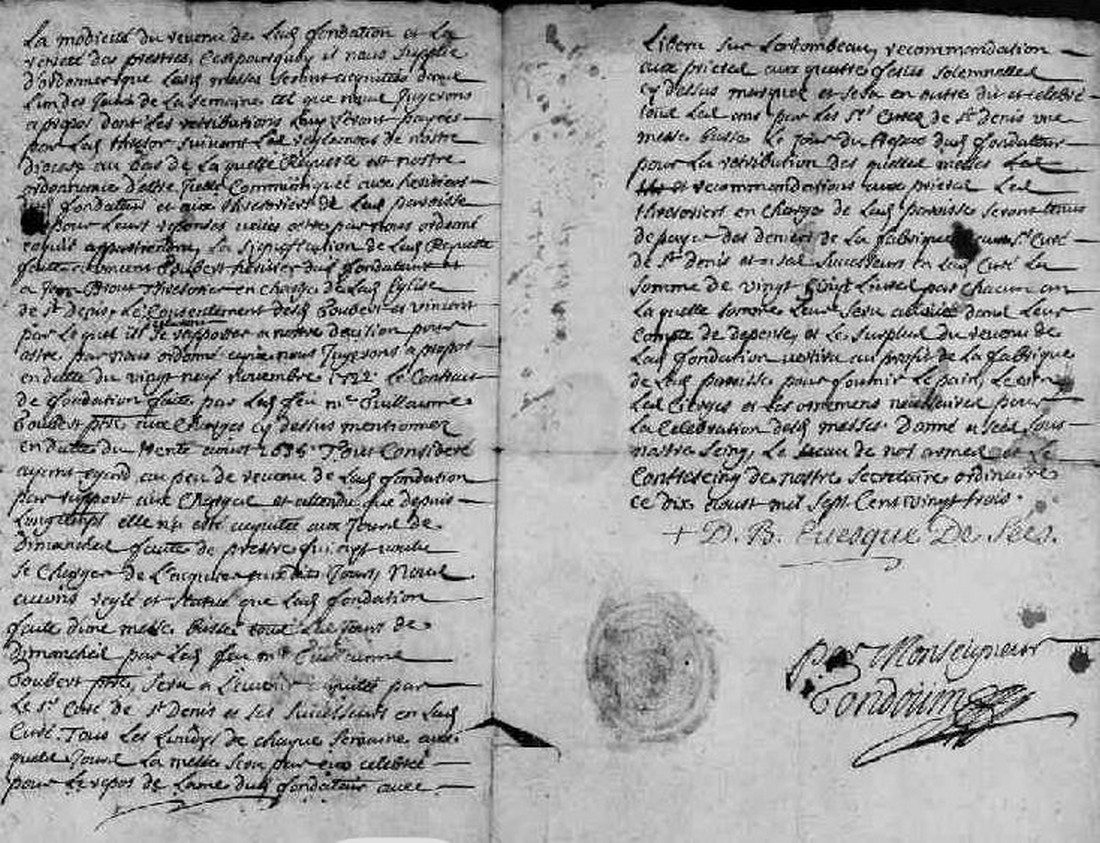 La modicité du revenu de Lad fondation et La
rareté des prestres, C'est pourquoy il nous supplie
d'ordonner que Lesd messes seront acquitées dans
L'un des Jours de La semaine tel que nous Jugerons
a propos dont Les retributions Leur seront payées
par Led thresor suivant Les reglemens de nostre
diocese au bas de La quelle Requeste est nostre
ordonnance d'estre Icelle Communiquée aux heritiers
dud fondateur et aux thresoriers de Lad paroisse
pour Leurs reponses veües estre par nous ordonné
ce qu'il appartiendra, La signification de Lad Requeste
faite a Vincent Goubert heritier dud fondateur et
a Jean thresorier en charge de Lad Eglise
de St Denis, Le Consentement desd Goubert et
par Le quel ils se rapporter a nostre decision pour
estre par Nous ordonné ce que nous Jugerons a propos
en datte du vingt neuf Novembre 1722. Le Contract
de fondation faite par Led feu me Guillaume
Goubert ptre aux Charges cy dessus mentionnez
en datte du trente aoust 1636. Tout Consideré
ayant egard au peu de revenu de Lad fondation
par rapport aux Charges et attendu que depuis
Longtemps elle n'a esté acquitée aux Jours de
dimanches faute de prestre qui ayt voulu
se Charger de L'acquiter Jours, Nous
avons reglé et statué que Lad fondation
faite d'une messe basse tous Les Jours de
dimanches par Led feu me Guillaume
Goubert ptre, sera a L'avenir acquitée par
Le Sr Curé de St Denis et ses successeurs en Lad
Cure Tous Les Lundys de chaque semaine aux
quels Jours La messe sera par eux celebrée
pour Le repos de L'ame dud fondateur avec
Libera sur Son tombeau, recommandation
aux prieres aux quatre festes solemnelles
cy dessus marquez et sera en outre dit et celebré
tous Les ans par Les Srs Curez de St Denis une
messe basse Le Jour du dud fondateur
pour La retribution des quelles messes Les
et recommandations aux prieres Les
thresoriers en charge de Lad paroisse seront tenus
de payer des deniers de La fabrique Sr Curé
de St Denis et a ses successeurs en Lad Cure La
somme de vingt Cinq Livres par chacun an
La quelle somme Leur sera allouée dans Leur
Compte de depense, et Le surplus du revenu de
Lad fondation restera au profit de La fabrique
de Lad paroisse pour fournir Le pain, Le vin
Les Cierges et Les ornemens necessaires pour
La Celebration desd messes. Donné a Sées sous
nostre seing, Le sceau de nos armes et Le
Contreseing de nostre secretaire ordinaire
ce dix aoust mil sept Cens vingt trois.
+ D. B. Evesque De Sées.
par Monseigneur